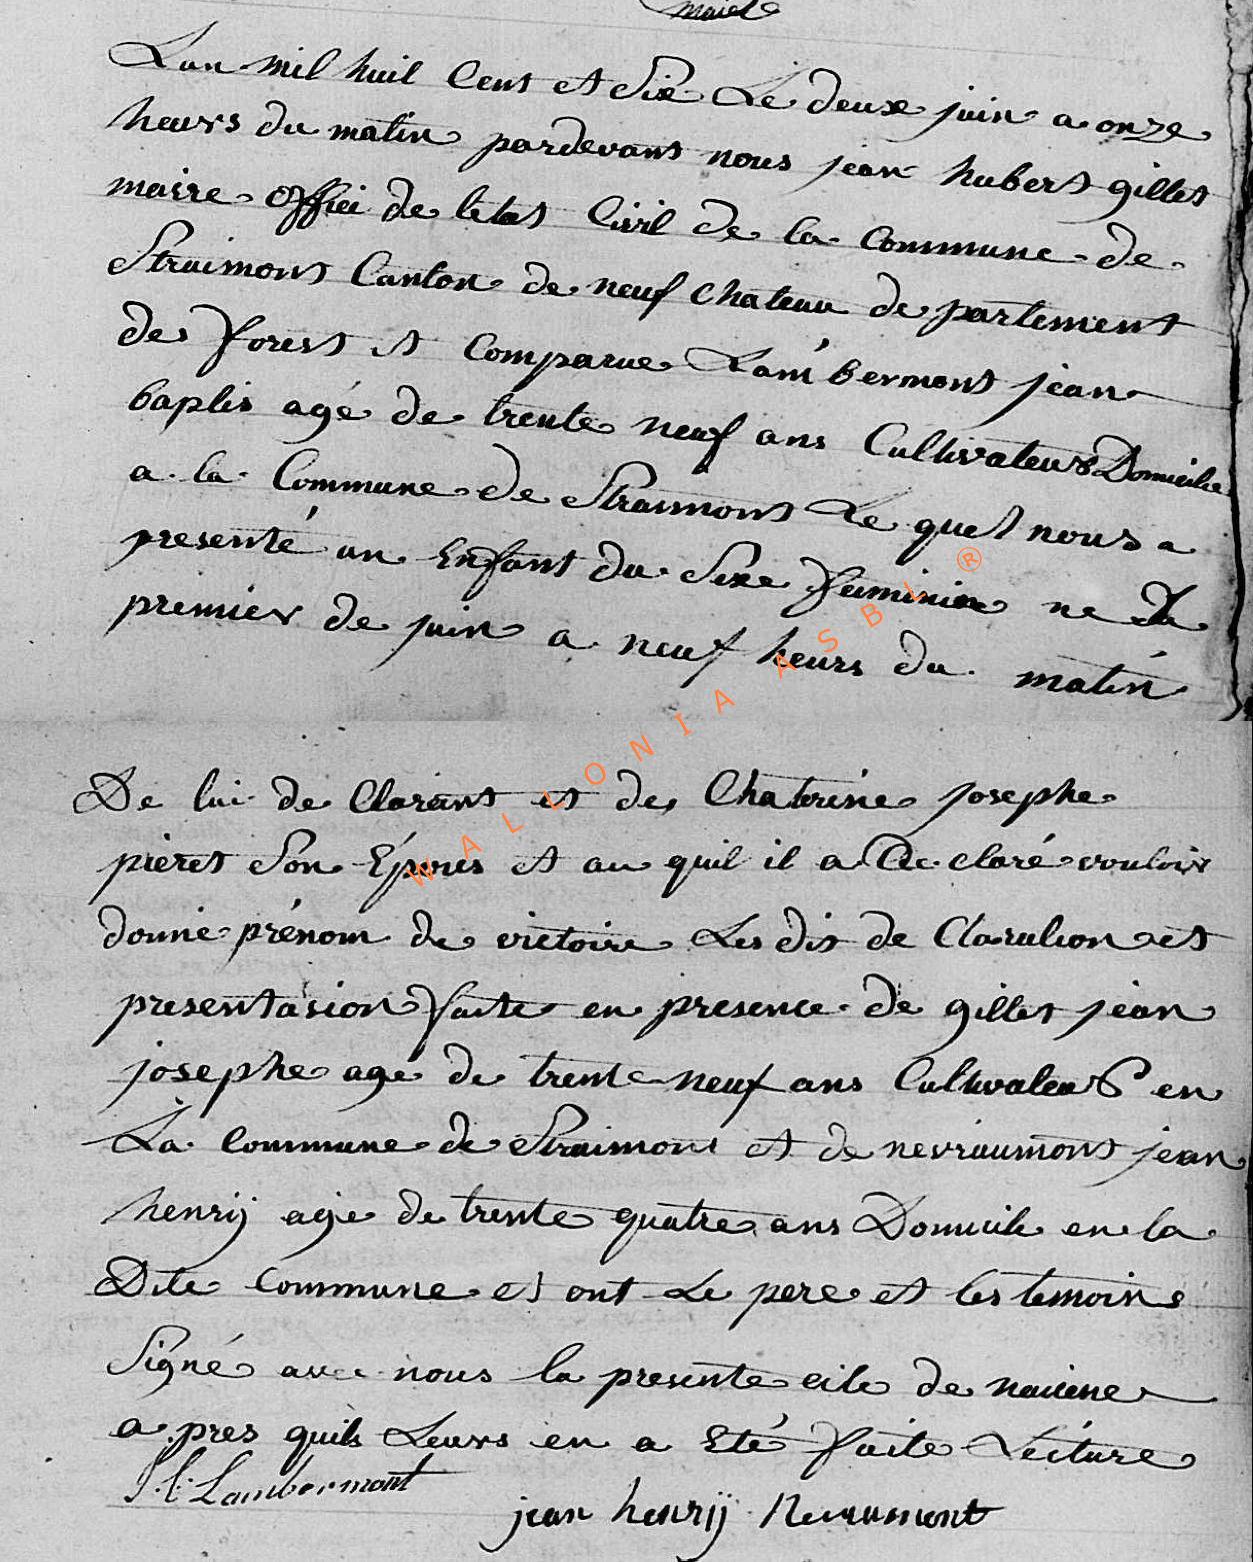 maire
Lan mil huit Cent et Six Le deux juin a onze
heurs du matin pardevant nous jean hubert gilles
maire offici de letat Civil de la Commune de
Straimont Canton de neuf chateau de partement
des forest et Comparue Lambermont jean
baptis agé de trente neuf ans Cultivateur Domicile
a la Commune de Straimont Le quel nous a
presenté un Enfant du Sexe feminine ne Le
premier de juin a neuf heurs du matin
De lui de Clarant et de Chaterine josephe
pieret Son Épous et au quil il a De claré vouloir
donné prénom de victoire Les dit de Claration et
presentasion faite en presence de gillet jean
josephe agé de trente neuf ans Cultivateur en
La Commune de Straimont et de nevraumont jean
henrij agé de trente quatre ans Domicile en la
Dite Commune et ont Le pere et les temoins
Signé avec nous la presente de
a pres quils Leurs en a Eté faite Lecture
Lambermont
jean henrij Nevraumont
WALLONIA ASBL ®